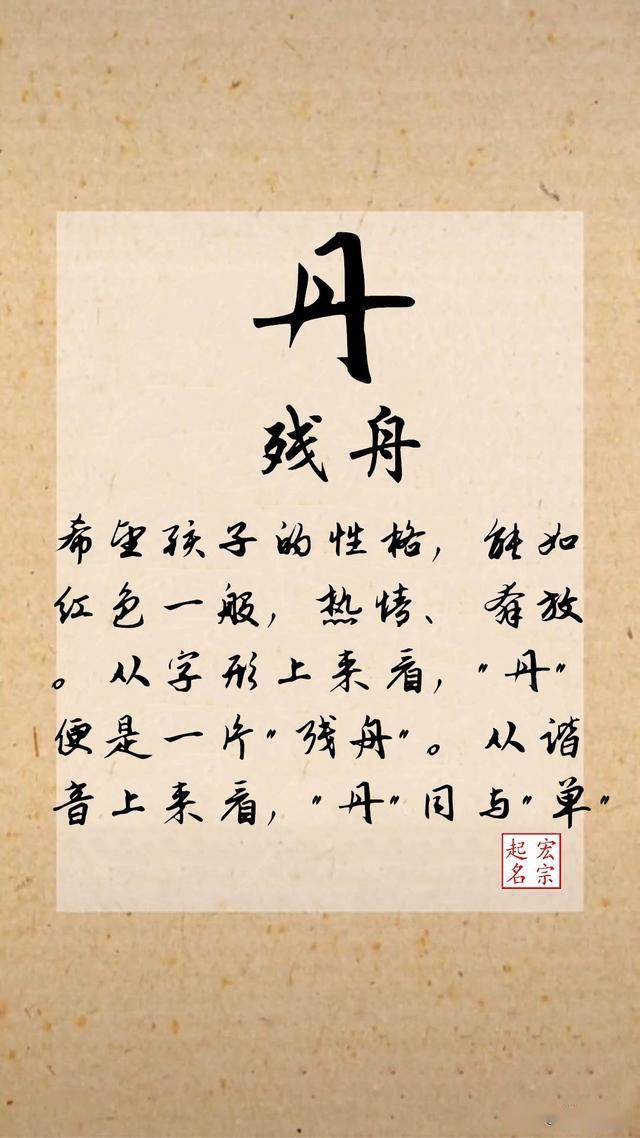 丹
残舟
希望孩子的性格，能如
红色一般，热情、奔放
。从字形上来看，"丹"
便是一片"残舟"。从谐
音上来看，"丹"同与"单"
宏宗
起名